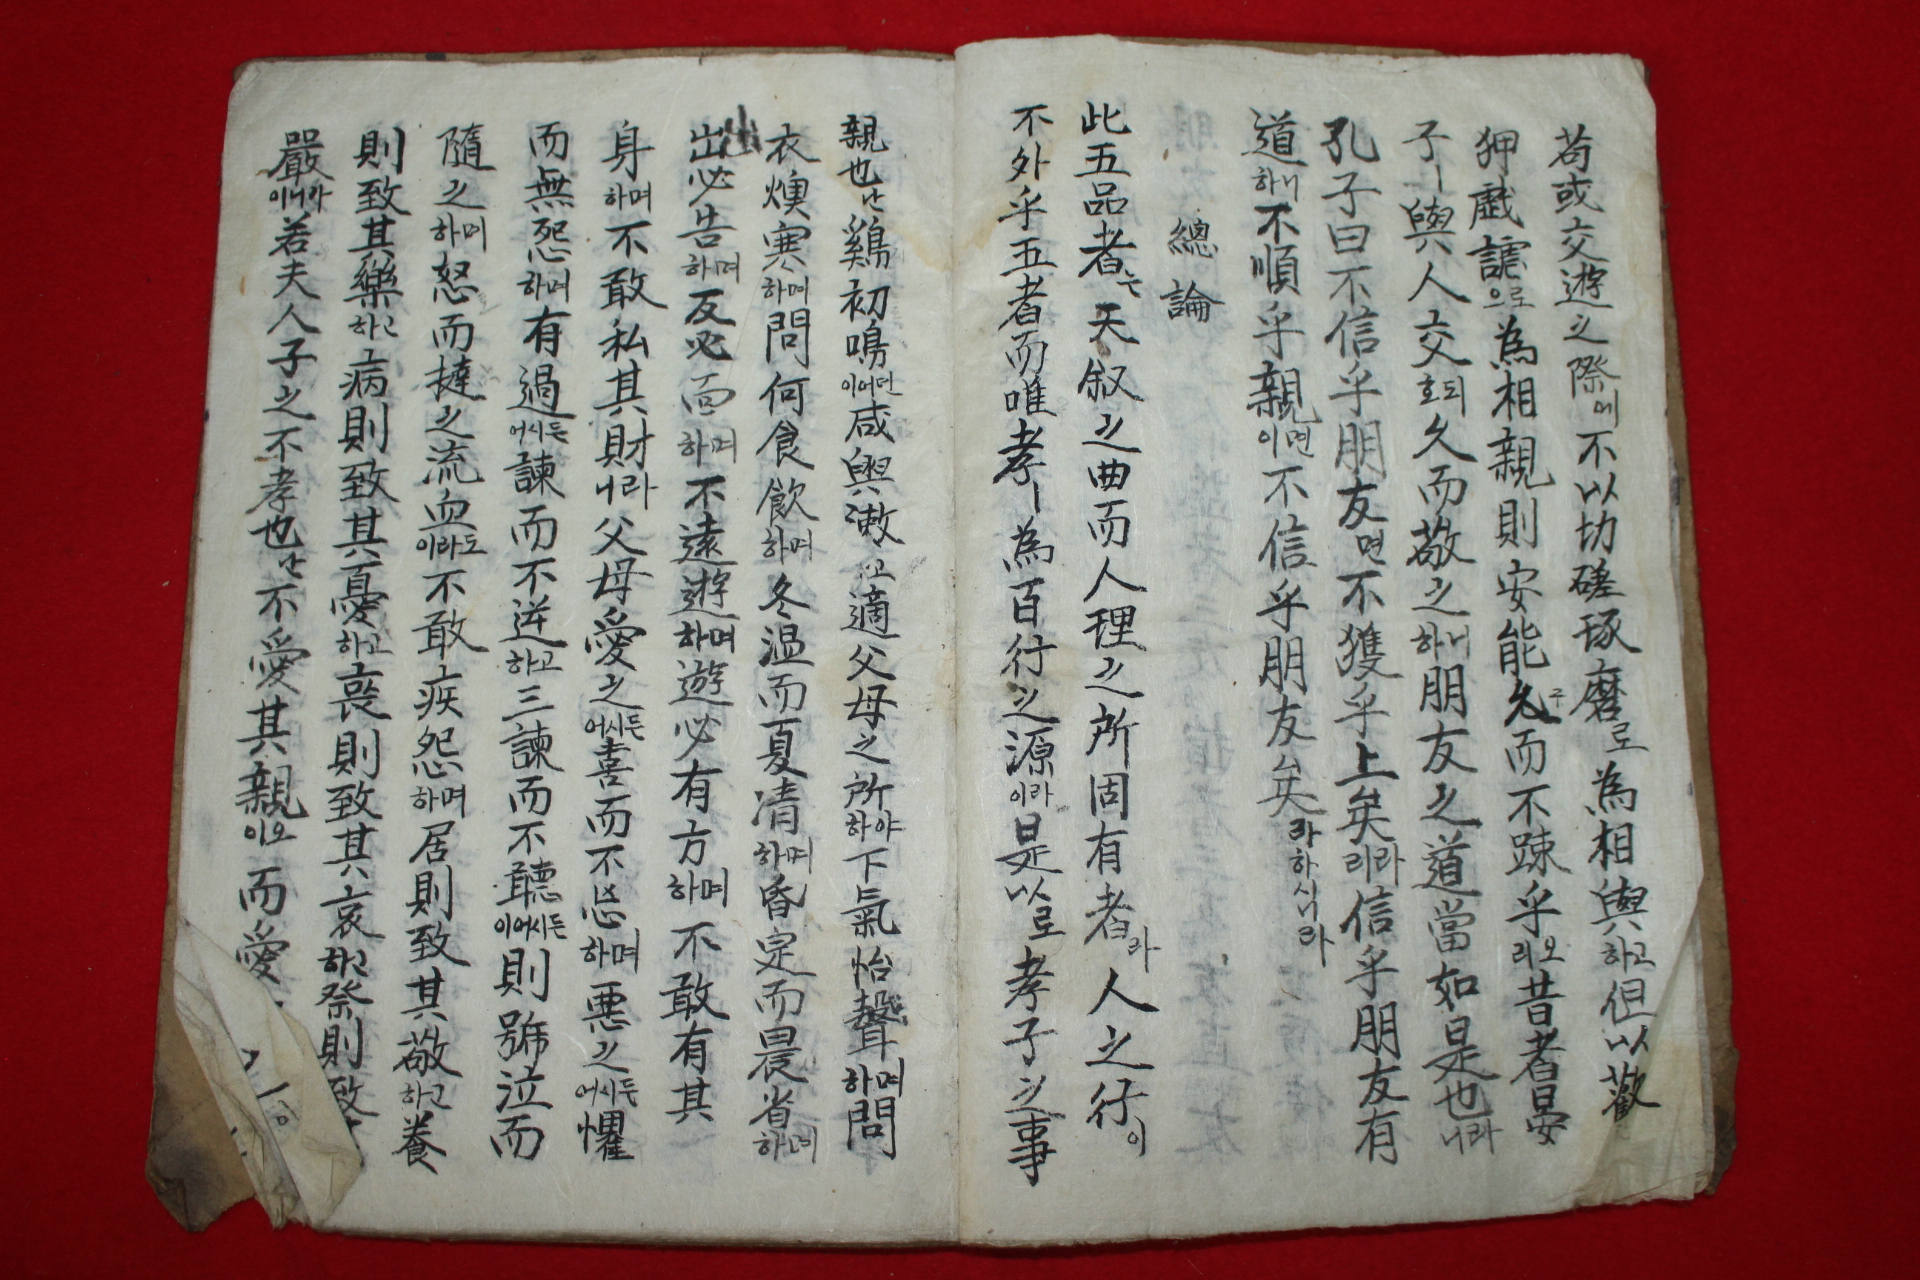 苟或交遊之際에不以切磋琢磨로為相與하고但以歡
狎戲謔으로為相親則安能久而不疎乎리오昔者晏
子ㅣ與人交호되久而敬之하니朋友之道當如是也니라
孔子曰不信乎朋友면不獲乎上矣리라信乎朋友有
道하니不順乎親이면不信乎朋友矣라하시니라
總論
此五品者는天叙之典而人理之所固有者라人之行이
不外乎五者而唯孝ㅣ為百行之源이라是以로孝子之事
親也는鷄初鳴이어던咸與漱고適父母之所하야下氣怡聲하며問
衣燠寒하며問何食飲하며冬温而夏凊하며昏定而晨省하며
出必告하며反必面하며不遠遊하며遊必有方하며不敢有其
身하며不敢私其財니라父母愛之어시든喜而不忘하며惡之어시든懼
而無怨하며有過어시든諫而不逆하고三諫而不聽이어시든則號泣而
隨之하며怒而撻之流血이라도不敢疾怨하며居則致其敬하고養
則致其樂하고病則致其憂하고喪則致其哀하고祭則致
嚴이니라若夫人子之不孝也는不愛其親이오而愛